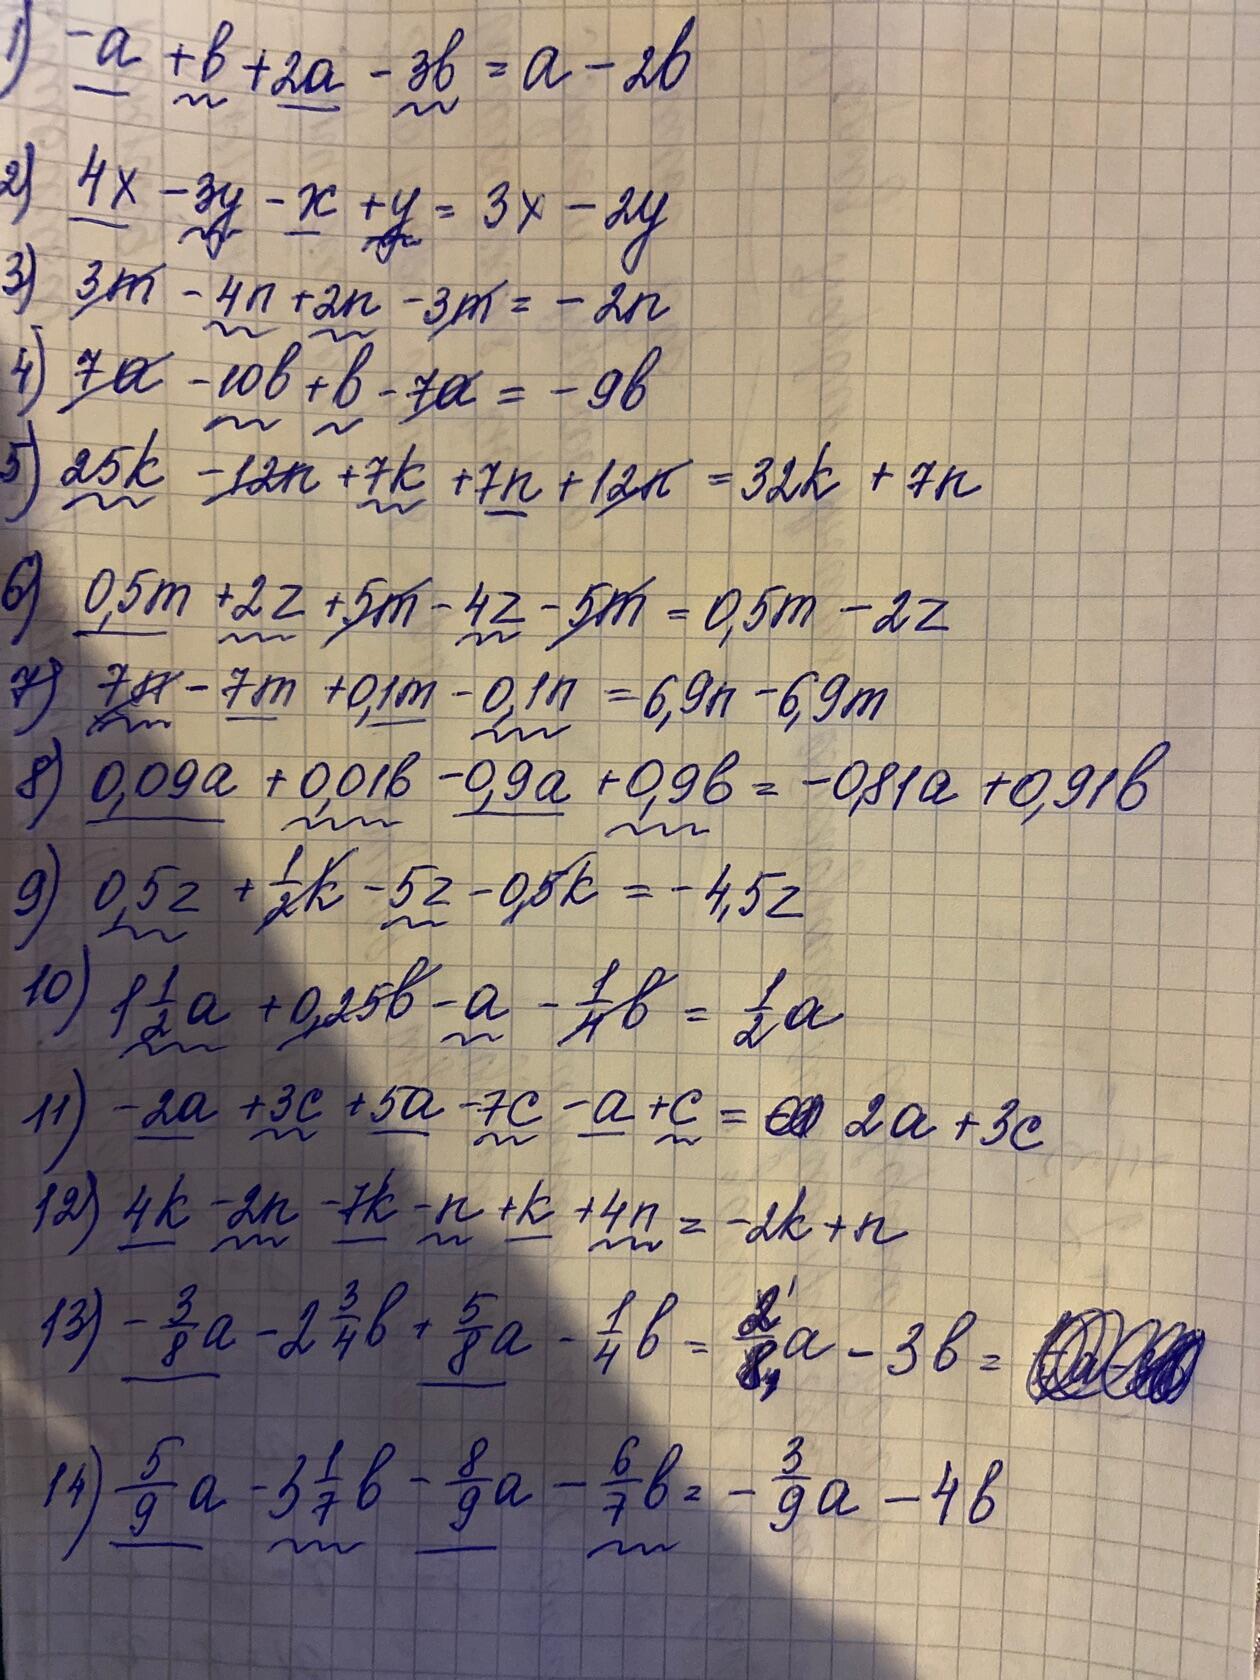 1) -a + b + 2a - 3b = a - 2b
2) 4x - 3y - x + y = 3x - 2y
3) 3m - 4n + 2n - 3m = - 2n
4) 7a - 10b + b - 7a = - 9b
5) 25k - 12n + 7k + 7n + 12n = 32k + 7n
6) 0,5m + 2z + 5m - 4z - 5m = 0,5m - 2z
7) 7n - 7m + 0,1m - 0,1n = 6,9n - 6,9m
8) 0,09a + 0,01b - 0,9a + 0,9b = -0,81a + 0,91b
9) 0,5z + 1/2 k - 5z - 0,5k = - 4,5z
10) 1 1/2 a + 0,25b - a - 1/4 b = 1/2 a
11) - 2a + 3c + 5a - 7c - a + c = 2a + 3c
12) 4k - 2n - 7k - n + k + 4n = - 2k + n
13) - 3/8 a - 2 3/4 b + 5/8 a - 1/4 b = 2/8 a - 3b =
14) 5/9 a - 3 1/7 b - 8/9 a - 6/7 b = - 3/9 a - 4b